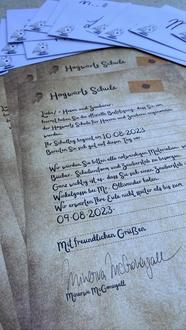 Hogwarts Schule
Hogwarts Schule
Liebe/-r Hexen und Zauberer
hiermit haben Sie die offizielle Bestätigung, dass Sie an
der Hogwarts Schule für Hexen und Zauberer angenommen
wurden.
Ihr Schultag beginnt am 10.08.2023.
Bereiten Sie sich gut auf diesen Tag vor.
Wir würden Sie bitten alle notwendigen Materialien
Bücher, Schuluniform und Zauberstab zu besorgen.
Ganz wichtig ist es, dass Sie sich einen Zauberstab
Winkelgasse bei Mr. Ollivander holen.
Wir erwarten Ihre Eule nicht später als bis zum
09.08.2023.
Mit freundlichen Grüßen
Minerva McGonagall
Minerva McGonagall